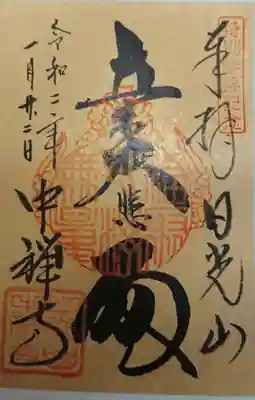 奉拝 日光山
立木大悲殿
令和二年
一月廿二日
中禅寺